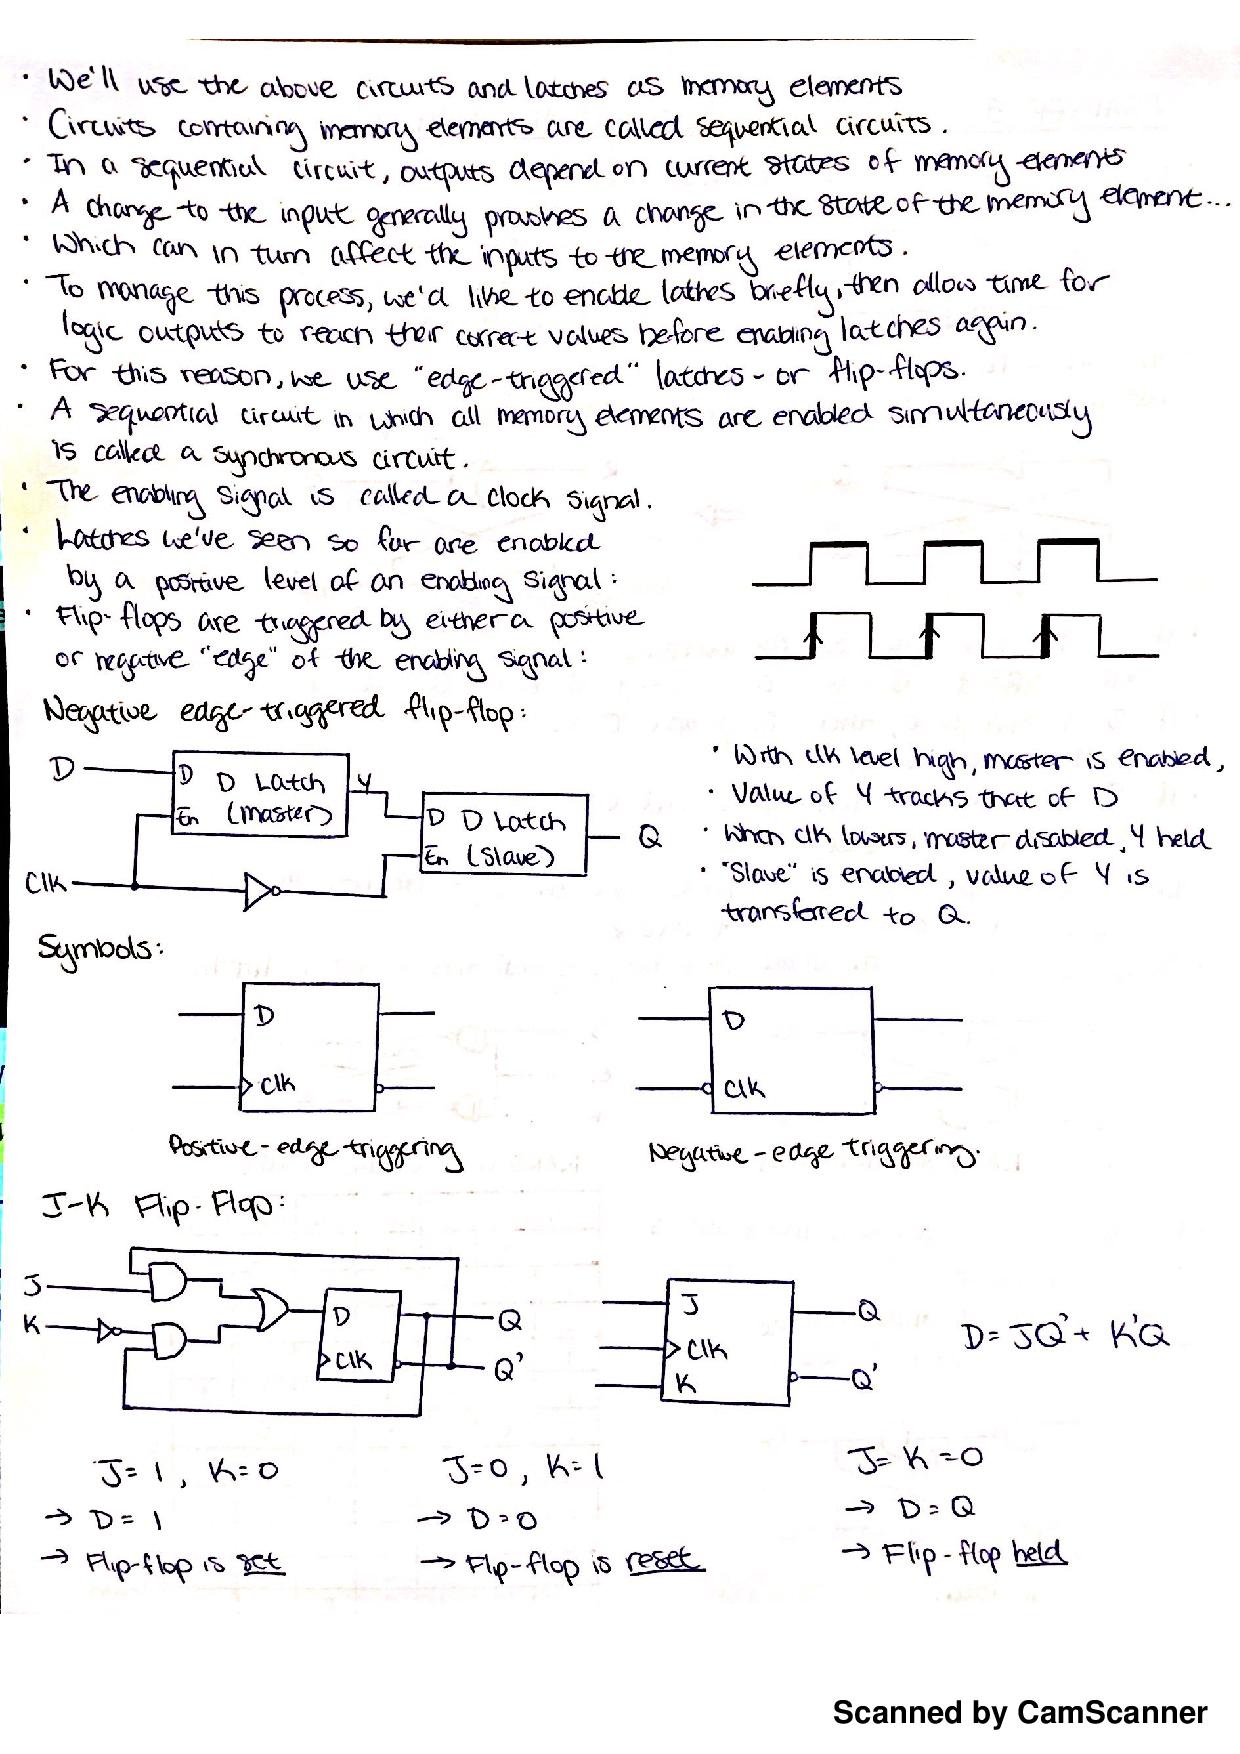 · We'll use the above circuits and latches as memory elements
· Circuits containing memory elements are called sequential circuits.
· In a sequential circuit, outputs depend on current states of memory elements
· A change to the input generally provokes a change in the state of the memory element...
· Which can in turn affect the inputs to the memory elements.
· To manage this process, we'd like to enable lathes briefly, then allow time for
logic outputs to reach their correct values before enabling latches again.
· For this reason, we use "edge-triggered" latches - or flip-flops.
· A sequential circuit in which all memory elements are enabled simultaneously
is called a synchronous circuit.
· The enabling signal is called a clock signal.
· Latches we've seen so far are enabled
by a positive level of an enabling signal:
· Flip-flops are triggered by either a positive
or negative "edge" of the enabling signal:
Negative edge-triggered flip-flop:
D
D D Latch
En (master)
Y
D D Latch
En (Slave)
Q
Clk
· With clk level high, master is enabled,
· Value of Y tracks that of D
· When clk lowers, master disabled, Y held
· "Slave" is enabled, value of Y is
transferred to Q.
Symbols:
D
Clk
D
Clk
Positive-edge triggering
Negative-edge triggering.
J-K Flip-Flop:
J
K
D
Clk
Q
Q'
J
Clk
K
Q
Q'
D = JQ' + K'Q
J = 1, K = 0
→ D = 1
→ Flip-flop is set
J=0, K=1
→ D=0
→ Flip-flop is reset
J= K =0
→ D = Q
→ Flip-flop held
Scanned by CamScanner